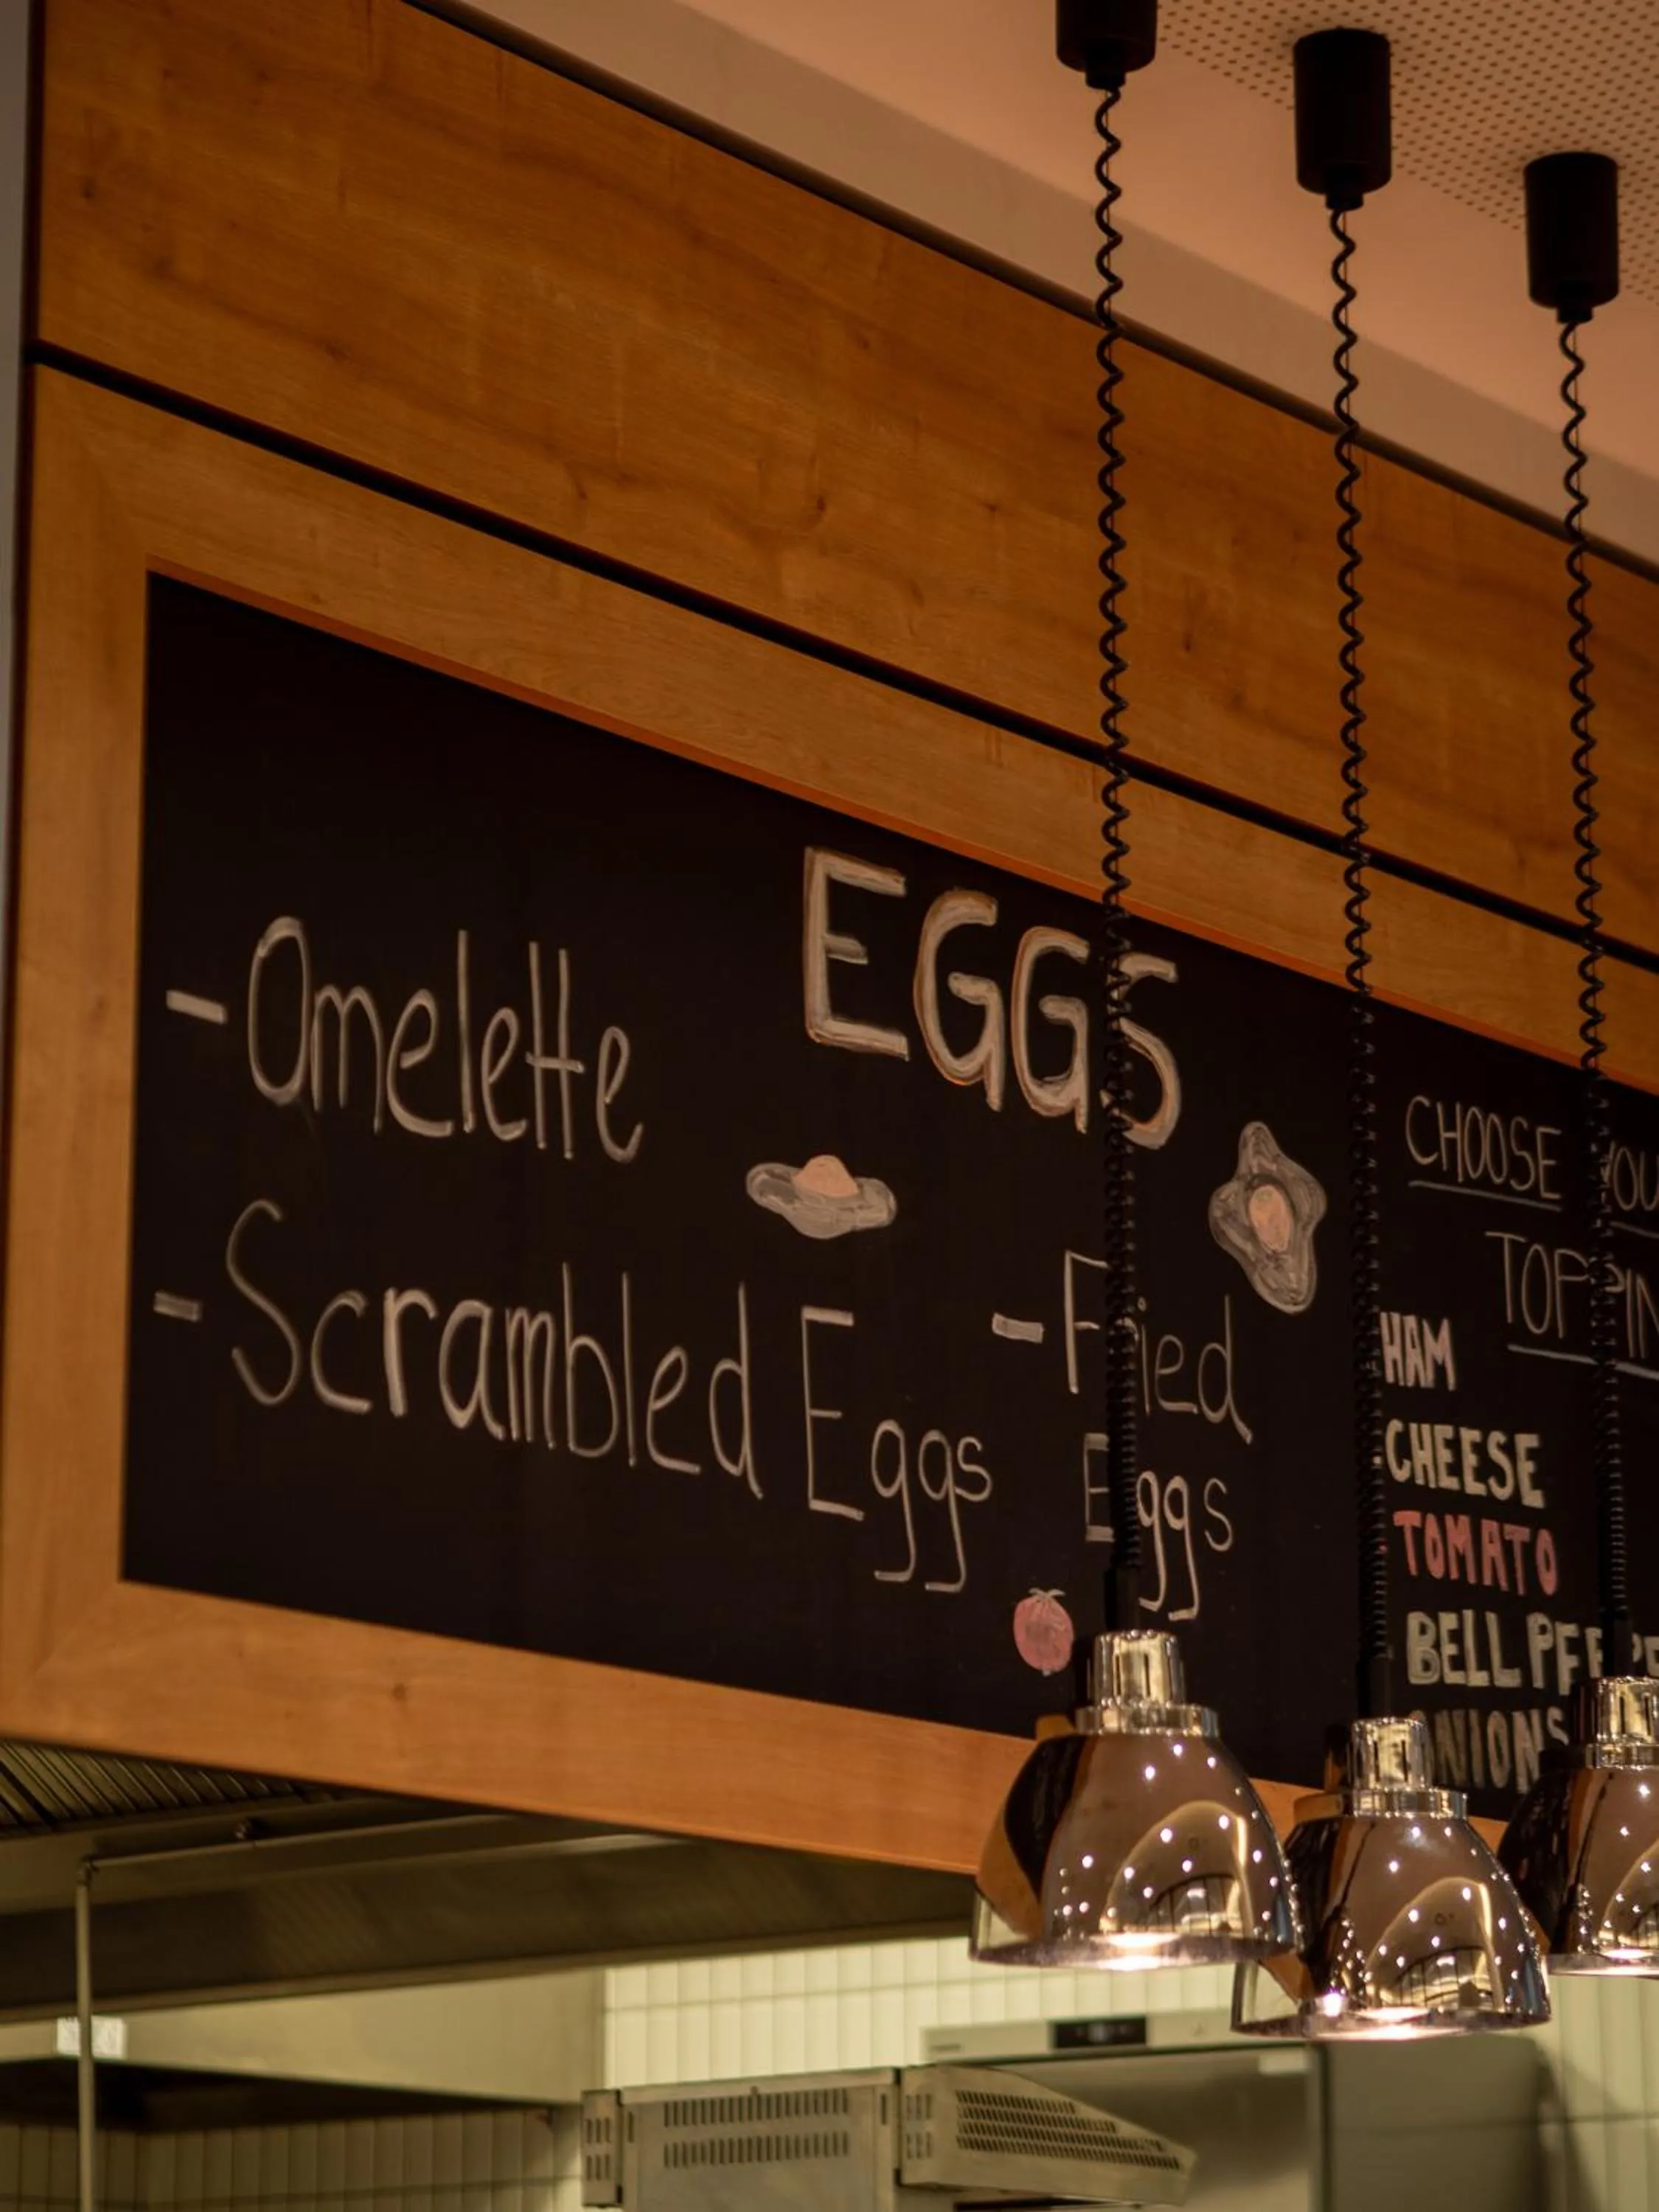 EGGS
- Omelette
- Scrambled Eggs
- Fried
Eggs
CHOOSE YOU
TOPPIN
HAM
CHEESE
TOMATO
BELL PEPPE
ONIONS